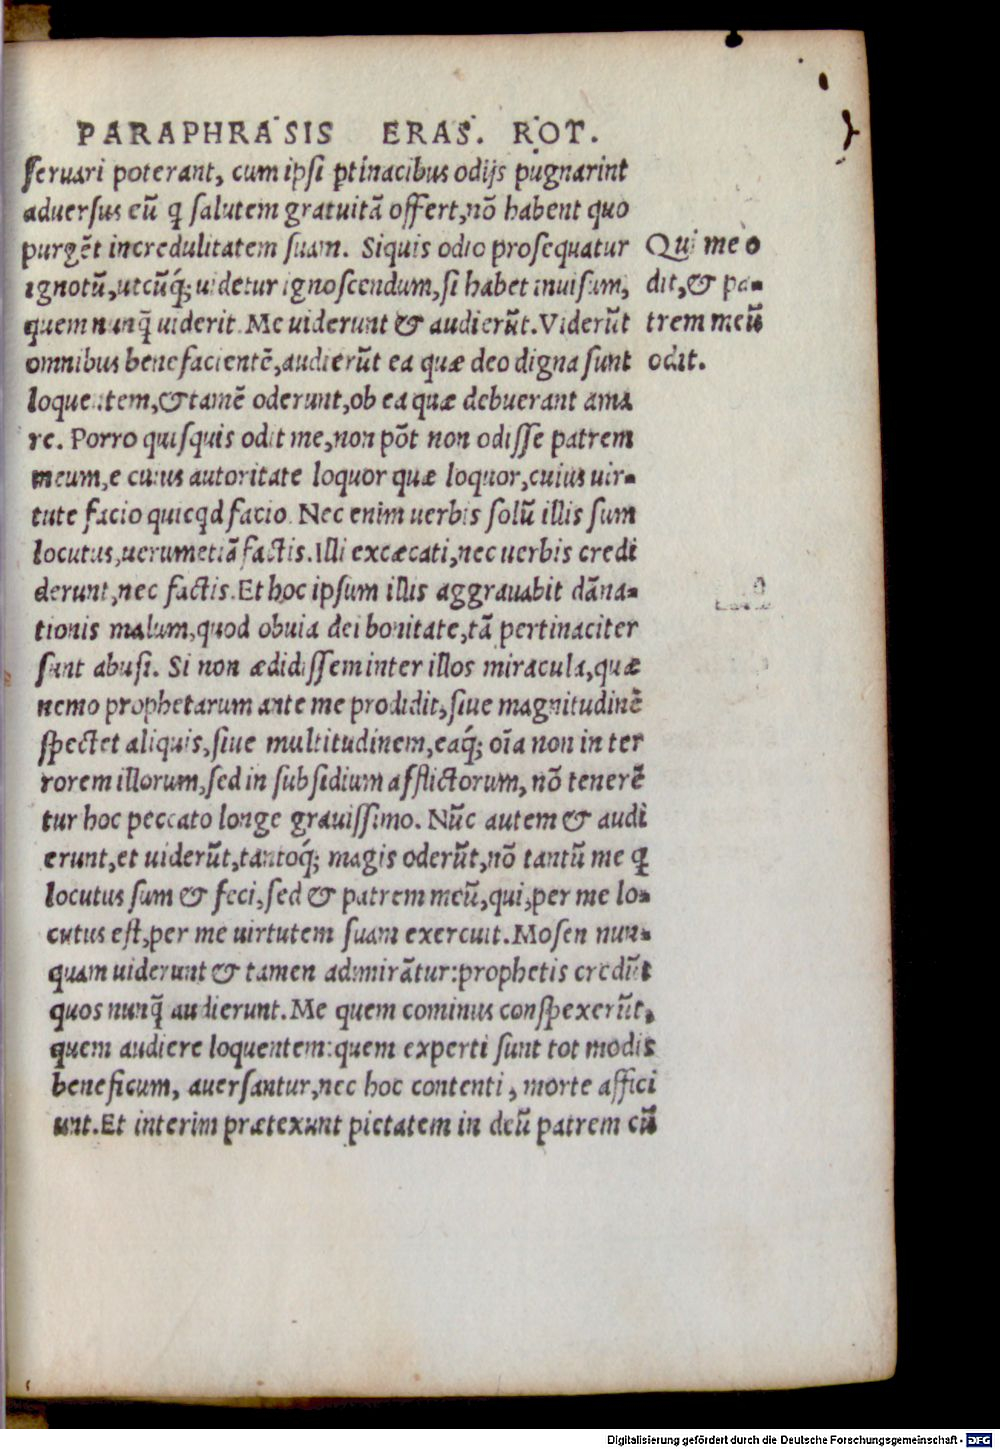 PARAPHRASIS ERAS. ROT.
seruari poterant, cum ipsi ꝑtinacibus odijs pugnarint
aduersus eū q̨ salutem gratuitā offert, nō habent quo
purgēt incredulitatem suam. Siquis odio prosequatur
ignotū, utcūq́; uidetur ignoscendum, si habet inuisum,
quem nunq̄ uiderit. Me uiderunt & audierūt. Viderūt
omnibus benefacientē, audierūt ea quæ deo digna sunt
loquentem, & tamē oderunt, ob ea quæ debuerant ama
re. Porro quisquis odit me, non pōt non odisse patrem
meum, e cuius autoritate loquor quæ loquor, cuius uir-
tute facio quicqd facio. Nec enim uerbis solū illis sum
locutus, uerumetiā factis. Illi excæcati, nec uerbis credi
derunt, nec factis. Et hoc ipsum illis aggrauabit dāna-
tionis malum, quod obuia dei bonitate, tā pertinaciter
sunt abusi. Si non ædidissem inter illos miracula, quæ
nemo prophetarum ante me prodidit, siue magnitudinē
spectet aliquis, siue multitudinem, eaq́; oīa non in ter
rorem illorum, sed in subsidium afflictorum, nō tenerē
tur hoc peccato longe grauissimo. Nūc autem & audi
erunt, et uiderūt, tantoq́; magis oderūt, nō tantū me q̨
locutus sum & feci, sed & patrem meū, qui, per me lo-
cutus est, per me uirtutem suam exercuit. Mosen nun-
quam uiderunt & tamen admirātur: prophetis credūt
quos nunq̄ audierunt. Me quem cominus conspexerūt,
quem audiere loquentem: quem experti sunt tot modis
beneficum, auersantur, nec hoc contenti, morte affici
unt. Et interim prætexunt pietatem in deū patrem cū
Qui me o
dit, & pa-
trem meū
odit.
Digitalisierung gefördert durch die Deutsche Forschungsgemeinschaft - DFG